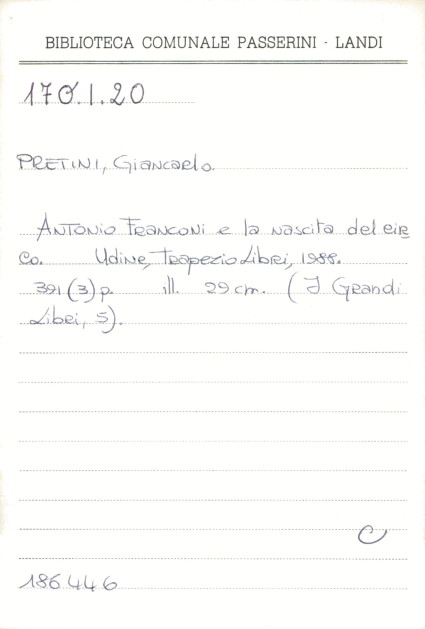 BIBLIOTECA COMUNALE PASSERINI - LANDI
170.I.20
PRETINI, Giancarlo.
Antonio Franconi e la nascita del cir
co. Udine, Trapezio Libri, 1988.
391 (3) p. ill. 29 cm. (I Grandi
Libri, 5).
C
186446